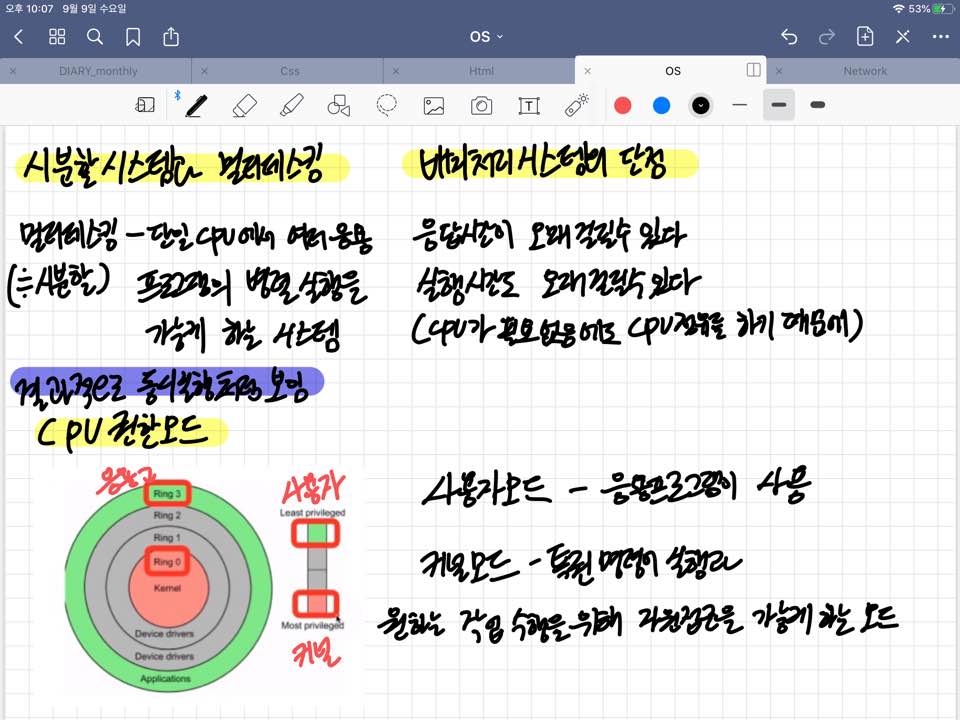 오후 10:07 9월 9일 수요일
53%
OS
DIARY_monthly
Css
Html
OS
Network
시분할시스템과 멀티테스킹
멀티테스킹 - 단일 CPU에서 여러 응용
(≒시분할) 프로그램의 병렬 실행을
가능케 하는 시스템
결과적으로 동시실행처럼 보임
배치처리시스템의 단점
응답시간이 오래 걸릴수 있다
실행시간도 오래걸릴수 있다
(CPU가 필요없음에도 CPU점유를 하기 때문에)
CPU 권한모드
응용프
Ring 3
Ring 2
Ring 1
Ring 0
Kernel
Device drivers
Device drivers
Applications
사용자
Least privileged
Most privileged
커널
사용자모드 - 응용프로그램이 사용
커널모드 - 특권 명령어 실행과
원하는 작업 수행을 위해 자원접근을 가능케 하는 모드